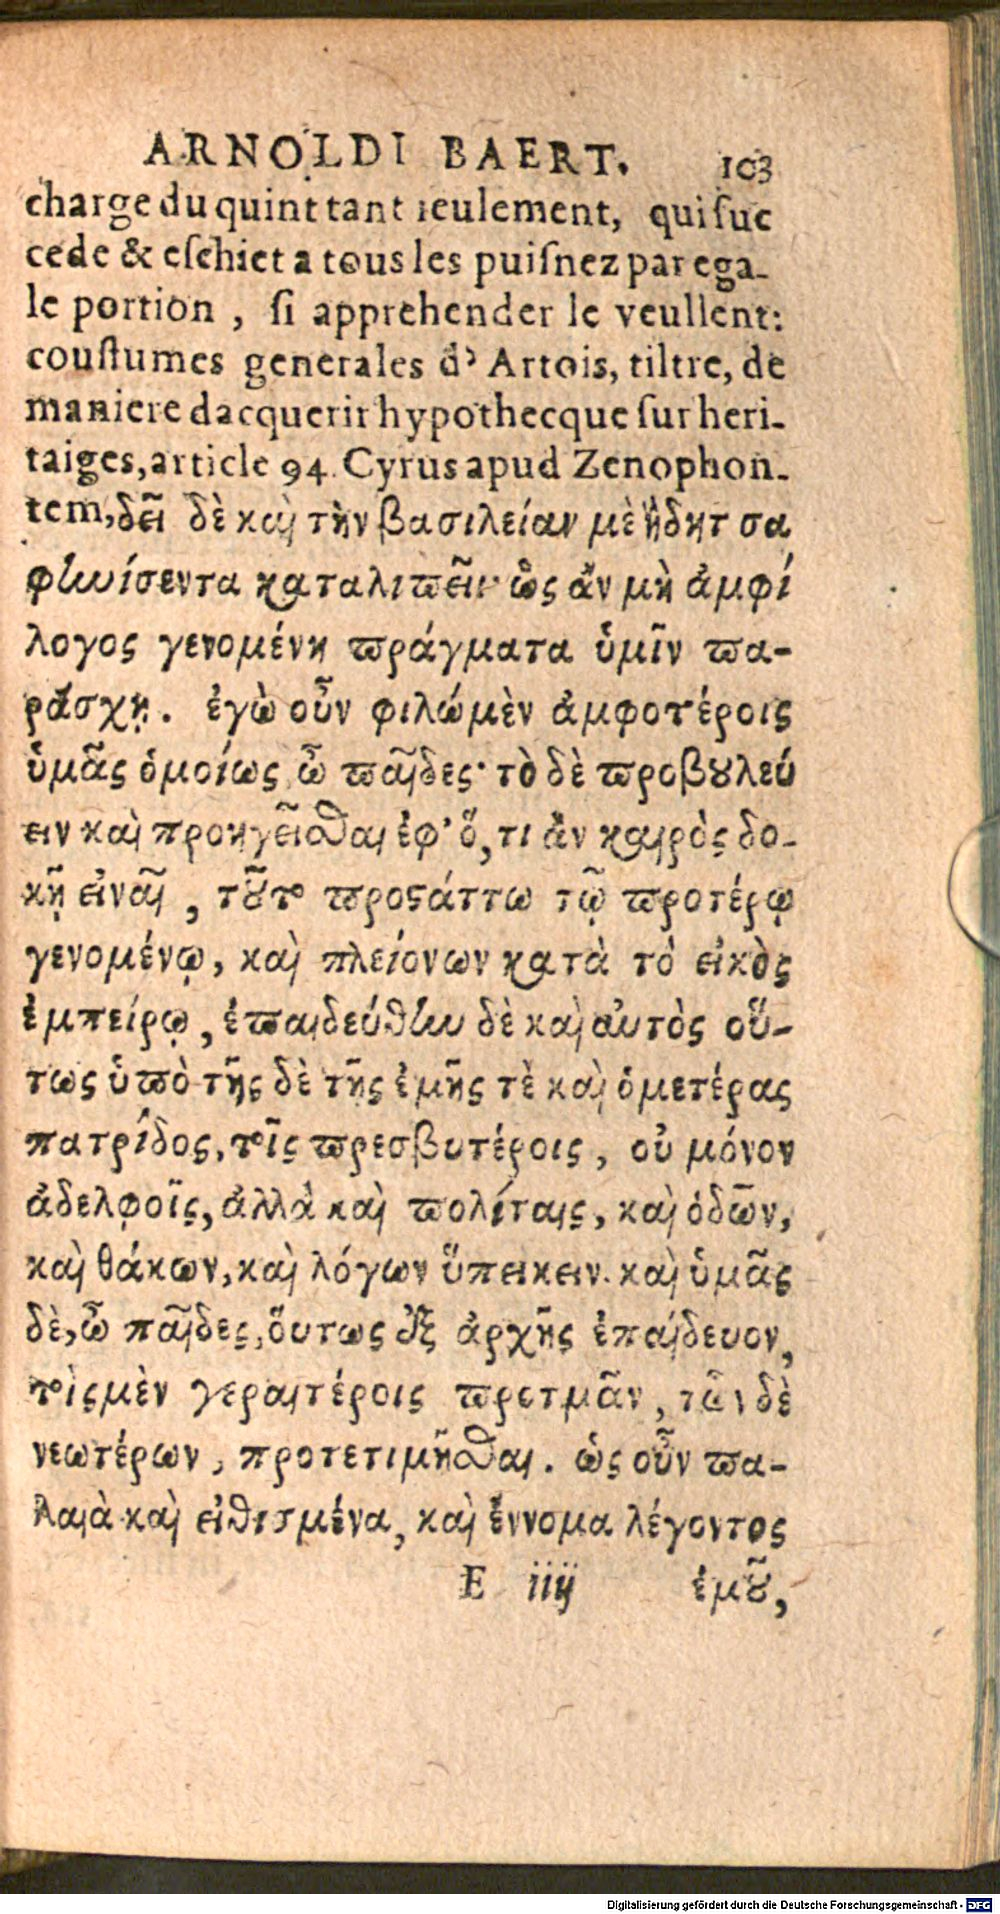 ARNOLDI BAERT. 103
charge du quint tant seulement, qui suc
cede & eschiet a tous les puisnez par ega-
le portion, si apprehender le veullent:
coustumes generales d' Artois, tiltre, de
maniere dacquerir hypothecque sur heri-
taiges, article 94. Cyrus apud Zenophon-
tem, δεῖ δὲ καὶ τὴν βασιλείαν μὲ ἤδητ σα
φηνίσεντα καταλιπεῖν· ὡς ἄν μὴ ἀμφί
λογος γενομένη πράγματα ὑμῖν πα-
ράσχῃ. ἐγὼ οὖν φιλώμὲν ἀμφοτέροις
ὑμᾶς ὁμοίως ὦ παῖδες· τὸ δὲ προβουλεύ
ειν καὶ προηγεῖσθαι ἐφ' ὅ, τι ἂν καιρὸς δο-
κῇ εἰναῖ, τοῦτο προστάττω τῷ προτέρῳ
γενομένῳ, καὶ πλείονων κατὰ τὸ εἰκὸς
ἐμπείρῳ, ἐπαιδεύθην δὲ καὶ αὐτὸς οὕ-
τως ὑπὸ τῆς δὲ τῆς ἐμῆς τὲ καὶ ὁμετέρας
πατρίδος, τοῖς πρεσβυτέροις, οὐ μόνον
ἀδελφοῖς, ἀλλὰ καὶ πολίταις, καὶ ὁδῶν,
καὶ θάκων, καὶ λόγων ὕπεικειν. καὶ ὑμᾶς
δὲ, ὦ παῖδες, ὅυτως ἐξ ἀρχῆς ἐπαίδευον,
τοὶς μὲν γεραιτέροις προτμᾶν, τῶν δὲ
νεωτέρων, προτετιμῆσθαι. ὡς οὖν πα-
λαιὰ καὶ εἰθισμένα, καὶ ἔννομα λέγοντος
E iiij ἐμοῦ,
Digitalisierung gefördert durch die Deutsche Forschungsgemeinschaft - DFG